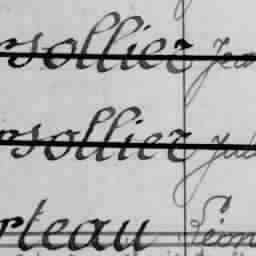 rsollier Jean
rsollier Jul
rteau Léon